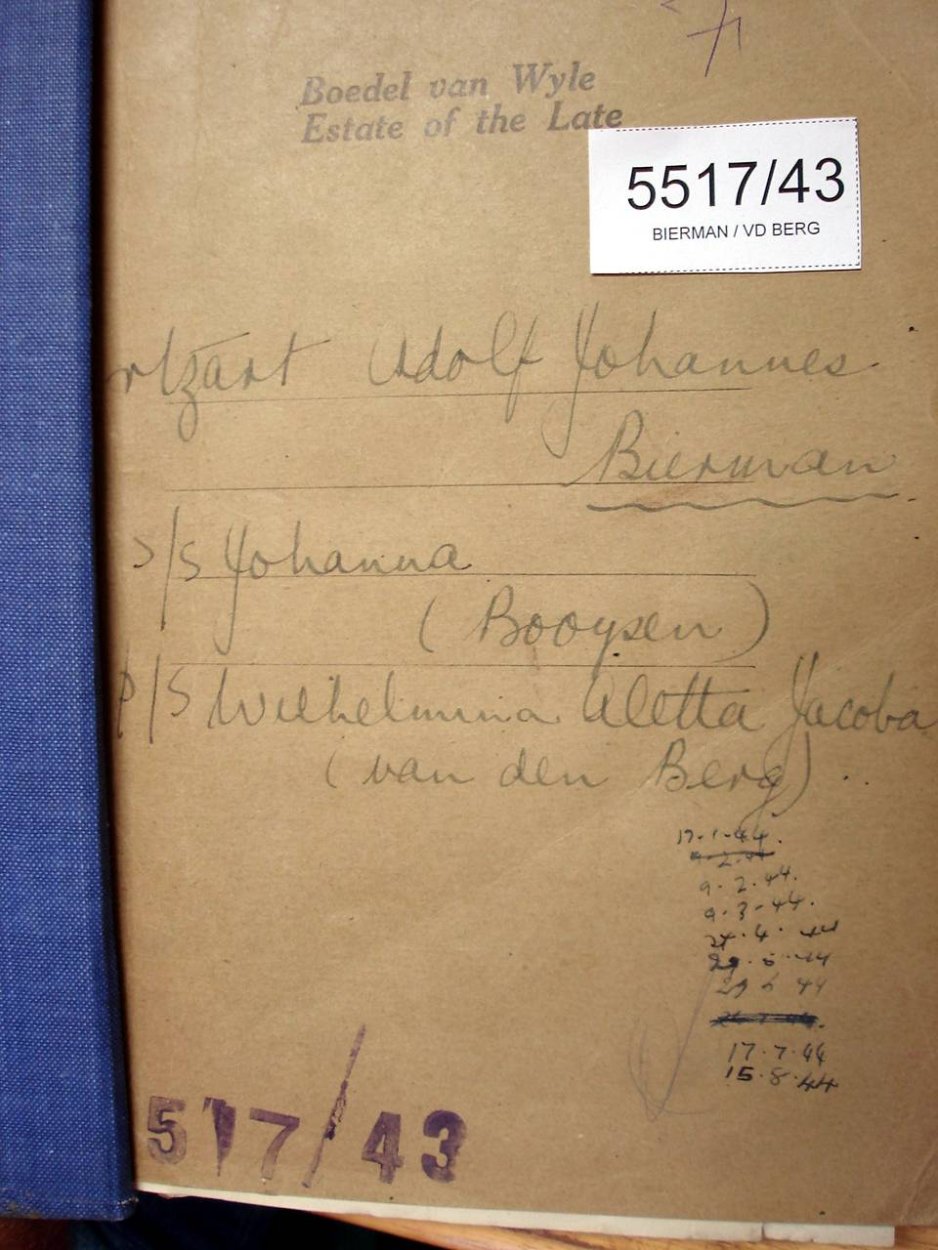 Boedel van Wyle
Estate of the Late
5517/43
BIERMAN / VD BERG
rtzart Adolf Johannes
Bierman
s/s Johanna
(Booysen)
p/s Wilhelmina Aletta Jacoba
(van den Berg)
17-1-44.
9.2.44.
9-3-44.
29 6 44
17.7.44
15.8.44
517/43